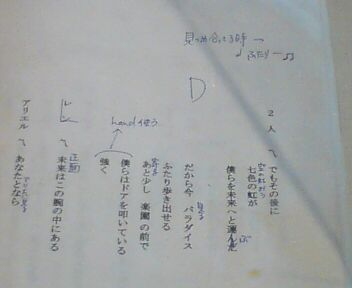 見つめ合ってる時→
♩ふたりー♫
D
2人 〽 でもその後に
七色の虹が
僕らを未来へと運んだ
ぶ
だから今 パラダイス
見る
ふたり歩き出せる
あと少し 楽園の前で
僕らはドアを叩いている
head使う
強く
レン 〽 未来はこの腕の中にある
正面
アリエル 〽 あなたとなら